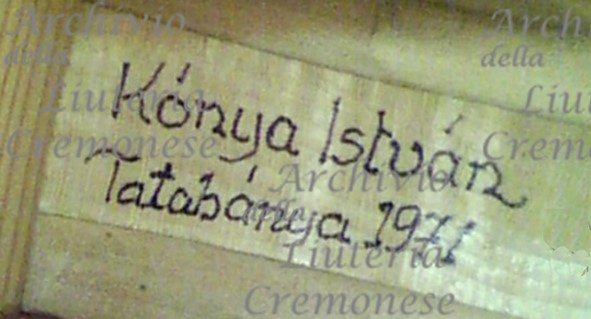 Archivio
della
Liuteria
Cremonese
Kónya István
Tatabánya 1971
Archivio
della
Liuteria
Cremonese
Arch
della
Liu
Cremo